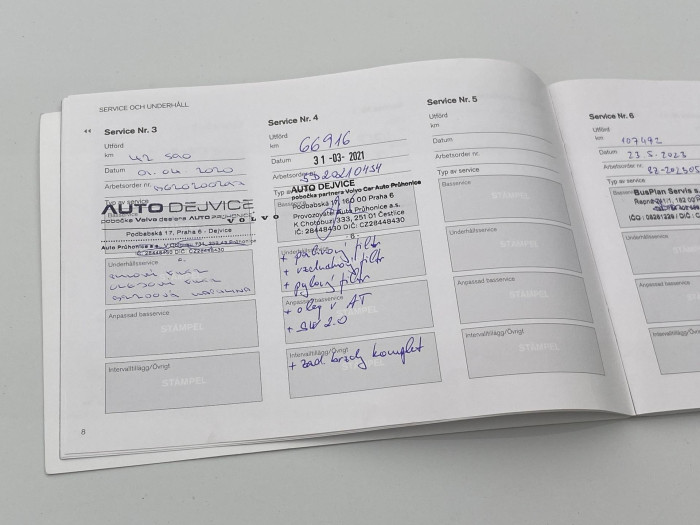 SERVICE OCH UNDERHÅLL
Service Nr. 3
Utförd
km 42 500
Datum 01.04 2020
Arbetsorder nr.
Typ av service
AUTO DEJVICE
pobočka Volvo designs AUTO PRŮHONICE
VOLVO
Podbabská 17, Praha 6 - Dejvice
Auto Průhonice a.s.
IČ: 28448430 DIČ: CZ28448430
Underhållsservice
Anpassad basservice
STÄMPEL
Intervalltillägg/Övrigt
STÄMPEL
8
Service Nr. 4
Utförd
km 66916
Datum 31-03-2021
Arbetsorder nr. SD20210454
Typ av service
AUTO DEJVICE
pobočka partnera Volvo Car Auto Průhonice
Podbabská 17, 160 00 Praha 6
Provozovatel: Auto Průhonice a.s.
K Chotobuzi 333, 251 01 Čestlice
IČ: 28448430 DIČ: CZ28448430
- 8 -
+ palivový filtr
+ vzduchový filtr
+ pylový filtr
Anpassad basservice
+ olej v AT
+ SW 2.0
Intervalltillägg/Övrigt
+ zad. brzdy komplet
STÄMPEL
Service Nr. 5
Utförd
km
Datum
Arbetsorder nr.
Typ av service
Basservice
STÄMPEL
Underhållsservice
STÄMPEL
Anpassad basservice
STÄMPEL
Intervalltillägg/Övrigt
STÄMPEL
Service Nr. 6
Utförd
km 107492
Datum 23. 5. 2023
Arbetsorder nr.
Typ av service
BusPlan Servis s.
Underhållsservice
Anpassad basservice
Intervalltillägg/Övrigt